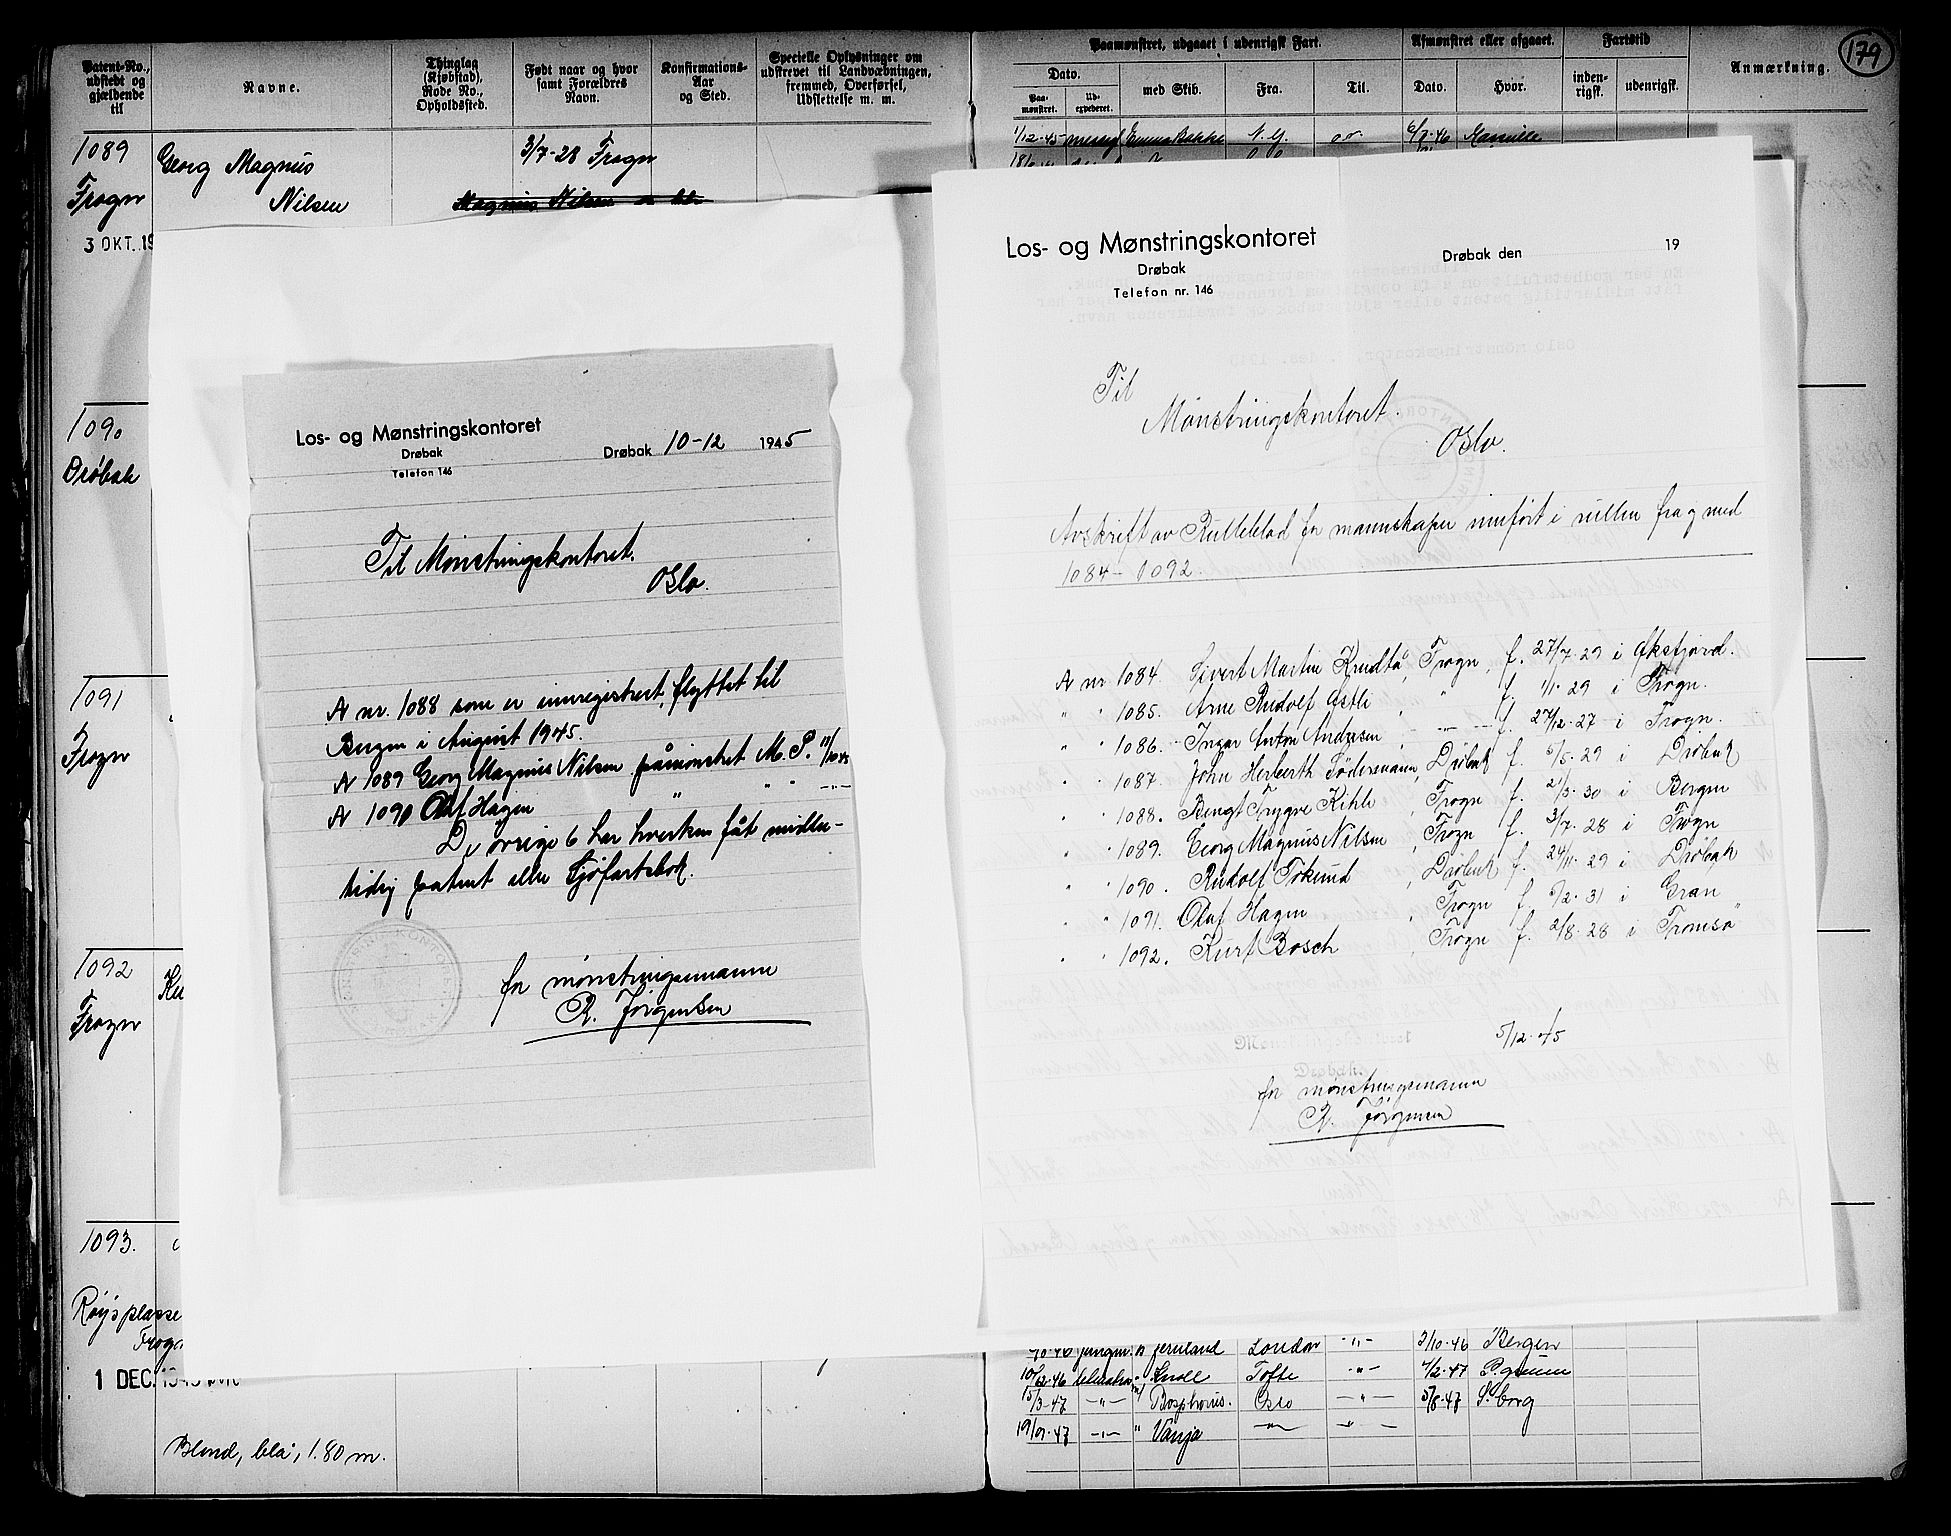 Patent-No., udstedt og gjældende til
Navne.
Thinglag (Kjøbstad), Rode No., Opholdssted.
Født naar og hvor samt Forældres Navn.
Konfirmations-Aar og Sted.
Specielle Oplysninger om udskrevet til Landværbningen, fremmed, Overførsel, Udslettelse m. m.
1089
Georg Magnus
3/7-28 Frogn
Frogn
Nilsen
Magnus Nilsen
3 OKT. 19
1090
Drøbak
1091
Frogn
1092
Ku
Frogn
1093.
Røysplasse
Frogn
1 DEC. 1945
Blond, blå, 1.80 m.
Los- og Mønstringskontoret
Drøbak
Telefon 146
Drøbak 10-12 1945
Til Mønstringskontoret.
Oslo.
A nr. 1088 som er innregistrert, flyttet til
Bergen i August 1945.
A 1089 Georg Magnus Nilsen påmønstret M. P. 11/10 45
A 1090 Olaf Hagen " " " —"—
De øvrige 6 har hverken fåt midler-
tidig patent eller Sjøfartsbok.
for mønstringsmannen
R. Jørgensen
Paamønstret, udgaaet i udenrigsk Fart.
Afmønstret eller afgaaet.
Fartstid
Anmærkning.
179
Dato.
med Skib.
Fra.
Til.
Dato.
Hvor.
inden-rigsk.
udenrigsk.
Paa-mønstret.
Ud-expederet.
1/12-45 Emma Bakke N.Y. 6/7-46
Los- og Mønstringskontoret
Drøbak
Telefon nr. 146
Drøbak den 19
Til
Mønstringskontoret.
Oslo.
Avskrift av Rulleblad for mannskaper innført i rullen fra og med
1084 - 1092.
A nr 1084. Sivert Martin Knudtå, Frogn, f. 27/7-29 i Øksfjord.
" " 1085. Arne Rudolf Østli " f. 1/1-29 i Frogn.
" " 1086. Ingar Anton Andresen, —"— f. 27/12-27 i Frogn.
" " 1087. John Herberth Södermann, Drøbak f. 6/5-29 i Drøbak
" " 1088. Bengt Trygve Kihle, Frogn f. 21/3-30 i Bergen
" " 1089. Georg Magnus Nilsen, Frogn f. 3/7-28 i Frogn
" " 1090. Rudolf Tokund, Drøbak f. 24/11-29 i Drøbak
" " 1091. Olaf Hagen, Frogn f. 6/2-31 i Gran
" " 1092. Kurt Bosch, Frogn f. 2/8-28 i Tromsø
5/12-45
Drøbak.
for mønstringsmannen
R. Jørgensen
London —"— 3/10-46 Bergen
10/12-46 Knoll Tofte —"— 4/2-47
15/3-47 —"— Bosphorus. Oslo —"— 5/8-47 S.borg
19/9-47 —"— " Vanja —"— —"—